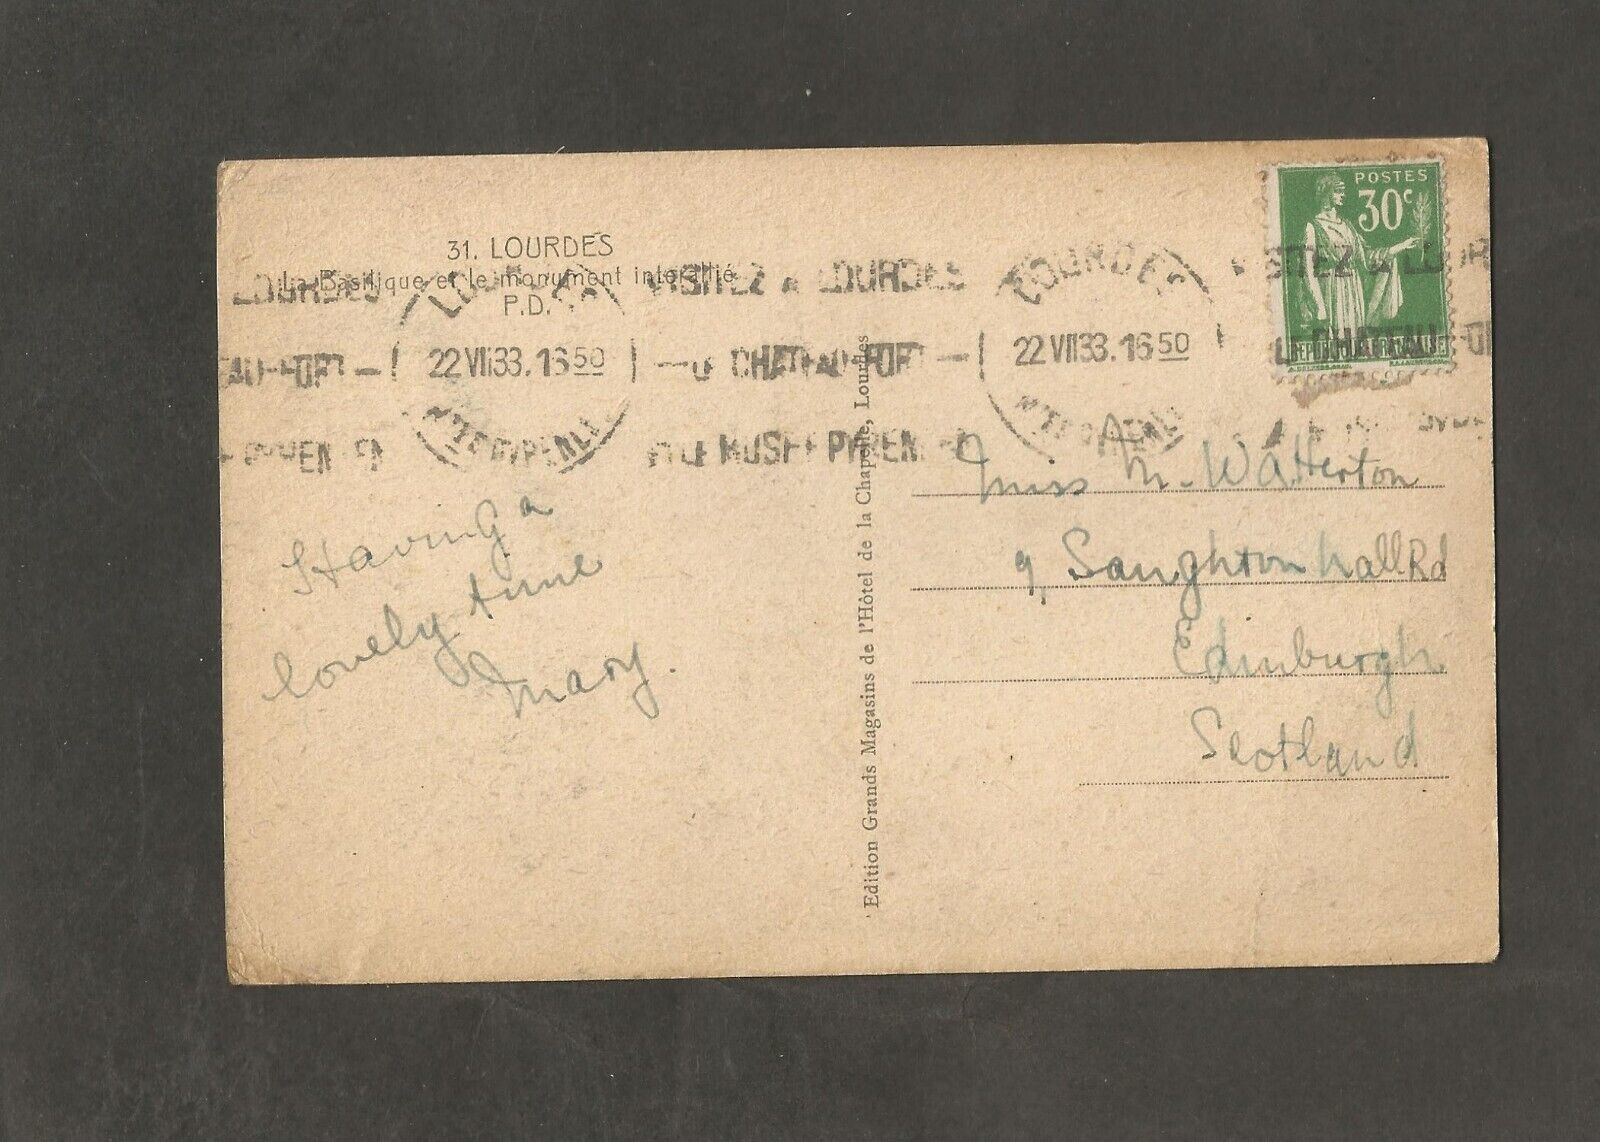 31. LOURDES
La Basilique et le monument interallié
P.D.
LOURDES
VISITEZ A LOURDES
LOURDES
VISITEZ A LOUR
22 VII 33. 16 50
CHATEAU-FORT —
22 VII 33. 16 50
CHATEAU-FO
LE MUSEE PYRENEEN
POSTES
30c
REPUBLIQUE FRANCAISE
Having a
lovely time
Mary.
Edition Grands Magasins de l'Hôtel de la Chapelle, Lourdes
Miss M. Watterton
9, Saughtonhall Rd
Edinburgh
Scotland